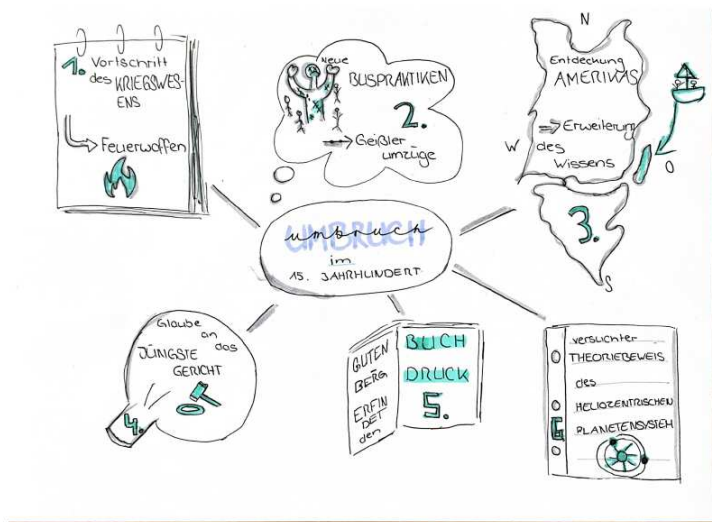 1. Vortschritt
des KRIEGSWES-
ENS
Feuerwaffen
Neue
BUSPRAKTIKEN
2.
Geißler
umzüge
N
Entdeckung
AMERIKAS
Erweiterung
des
Wissens
W
O
3.
S
umbruch
UMBRUCH
im
15. JAHRHUNDERT
Glaube
an
das
JÜNGSTE
GERICHT
4.
GUTEN
BERG
ERFIN
DET
den
BUCH
DRUCK
5.
versuchter
THEORIEBEWEIS
des
HELIOZENTRISCHEN
6
PLANETENSYSTEM